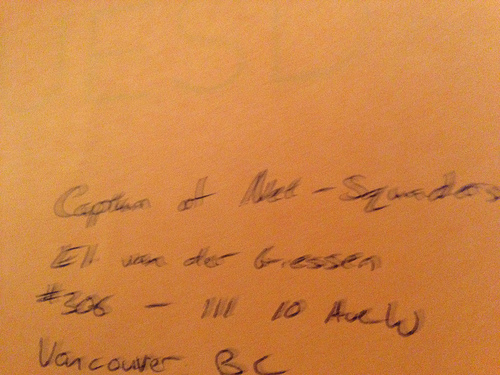 Captain of Net-Squaders
Eli van der Giessen
#306 - 111 10 Ave W
Vancouver BC